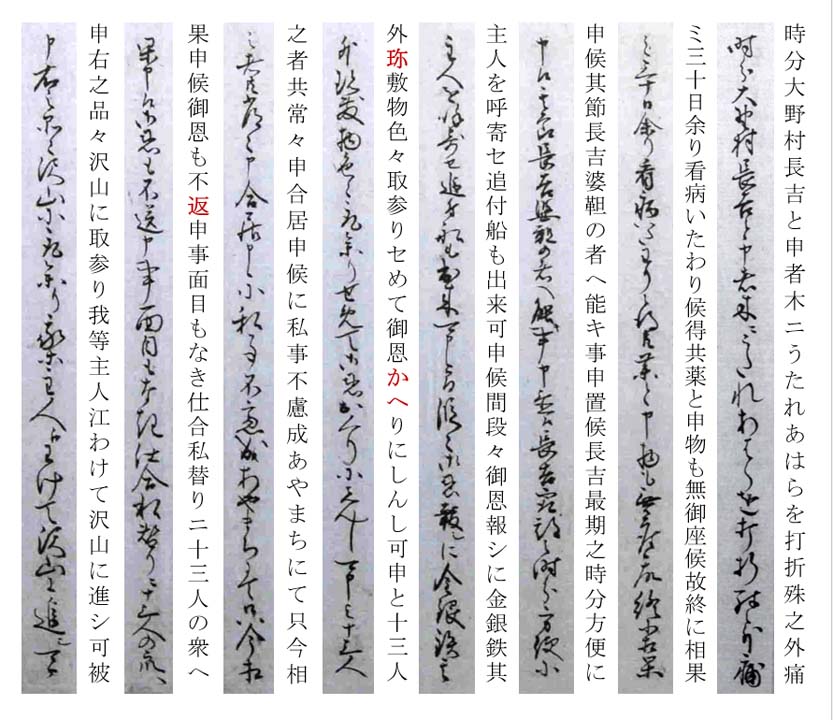 時分大野村長吉と申者木ニうたれあはらを打折殊之外痛
ミ三十日余り看病いたわり候得共薬と申物も無御座候故終に相果
申候其節長吉婆靼の者へ能キ事申置候長吉最期之時分方便に
主人を呼寄セ追付船も出来可申候間段々御恩報シに金銀鉄其
外珎敷物色々取参りセめて御恩かへりにしんし可申と十三人
之者共常々申合居申候に私事不慮成あやまちにて只今相
果申候御恩も不返申事面目もなき仕合私替りニ十三人の衆へ
申右之品々沢山に取参り我等主人江わけて沢山に進シ可被